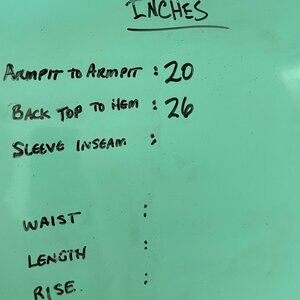 INCHES
ARMPIT TO ARMPIT : 20
BACK TOP TO HEM : 26
SLEEVE INSEAM :
WAIST :
LENGTH :
RISE :